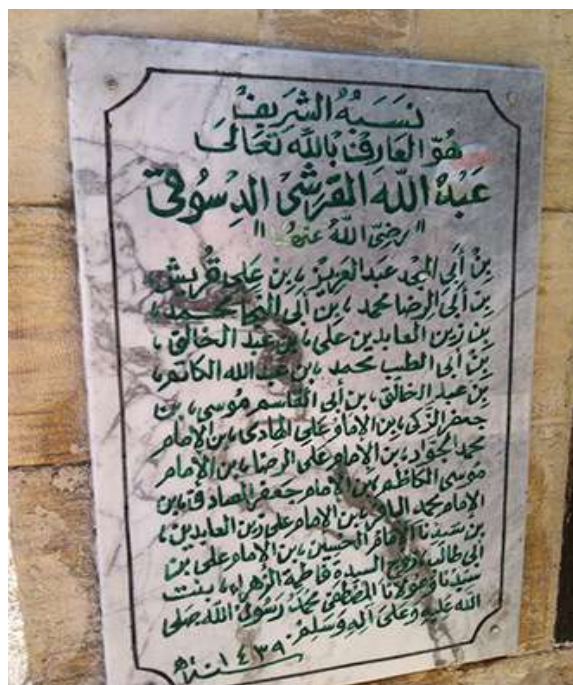 نَسَبُهُ الشريف
هُوَ العارف بالله تعالى
عَبْدُ اللهِ القرشى الدسوقى
"رضى الله عنهما"
بن أبى المجد عبد العزيز ، بن على قريش ،
بن أبى الرضا محمد ، بن أبى النجا محمد ،
بن زين العابدين على ، بن عبد الخالق ،
بن أبى الطيب محمد ، بن عبد الله الكاتم ،
بن عبد الخالق ، بن أبى القاسم موسى ، بن
جعفر الزكى ، بن الإمام على الهادى ، بن الإمام
محمد الجواد ، بن الإمام على الرضا ، بن الإمام
موسى الكاظم ، بن الإمام جعفر الصادق ، بن
الإمام محمد الباقر ، بن الإمام على زين العابدين ،
بن سيدنا الإمام الحسين ، بن الإمام على بن
أبى طالب ، زوج السيدة فاطمة الزهراء ، بنت
سيدنا ومولانا المصطفى محمد رسول الله صلى
الله عليه وعلى آله وسلم
سنة ١٤٣٩ هـ